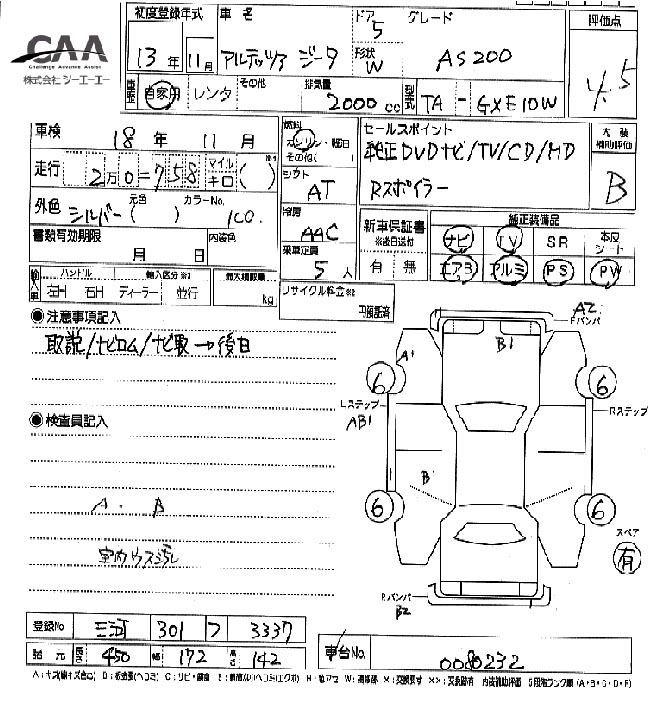 CAA
Challenge Advance Assist
株式会社シーエーエー
初度登録年式 13年 11月
車名 アルテッツァ ジータ
ドア 5
形状 W
グレード AS200
評価点 4.5
車歴 自家用 レンタ その他
排気量 2000cc
型式 TA - GXE10W
車検 18年 11月
燃料 ガソリン・軽油 その他( )
走行 2万0=758 マイル キロ ( )
シフト AT
外色 シルバー 元色( ) カラーNo. 1C0.
冷房 AAC
書類有効期限 月 日
内装色
乗車定員 5人
セールスポイント
純正DVDナビ/TV/CD/MD
Rスポイラー
内装補助評価 B
新車保証書 ※後日送付
有 無
純正装備品
ナビ TV SR 本皮シート
エアB アルミ PS PW
輸入車 ハンドル 輸入区分※1
左H 右H ディーラー 並行
最大積載量 kg
リサイクル料金※2
円預託済
●注意事項記入
取説/ナビロム/ナビ取→後日
●検査員記入
A・B
室内ウス汚し
AZ
Fバンパ
B1
A1
6
6
Lステップ
AB1
Rステップ
B
6
6
スペア
有
Rバンパ
B2
登録No 三河 301 フ 3337
諸元 長さ 450 幅 172 高さ 142
車台No. 0080232